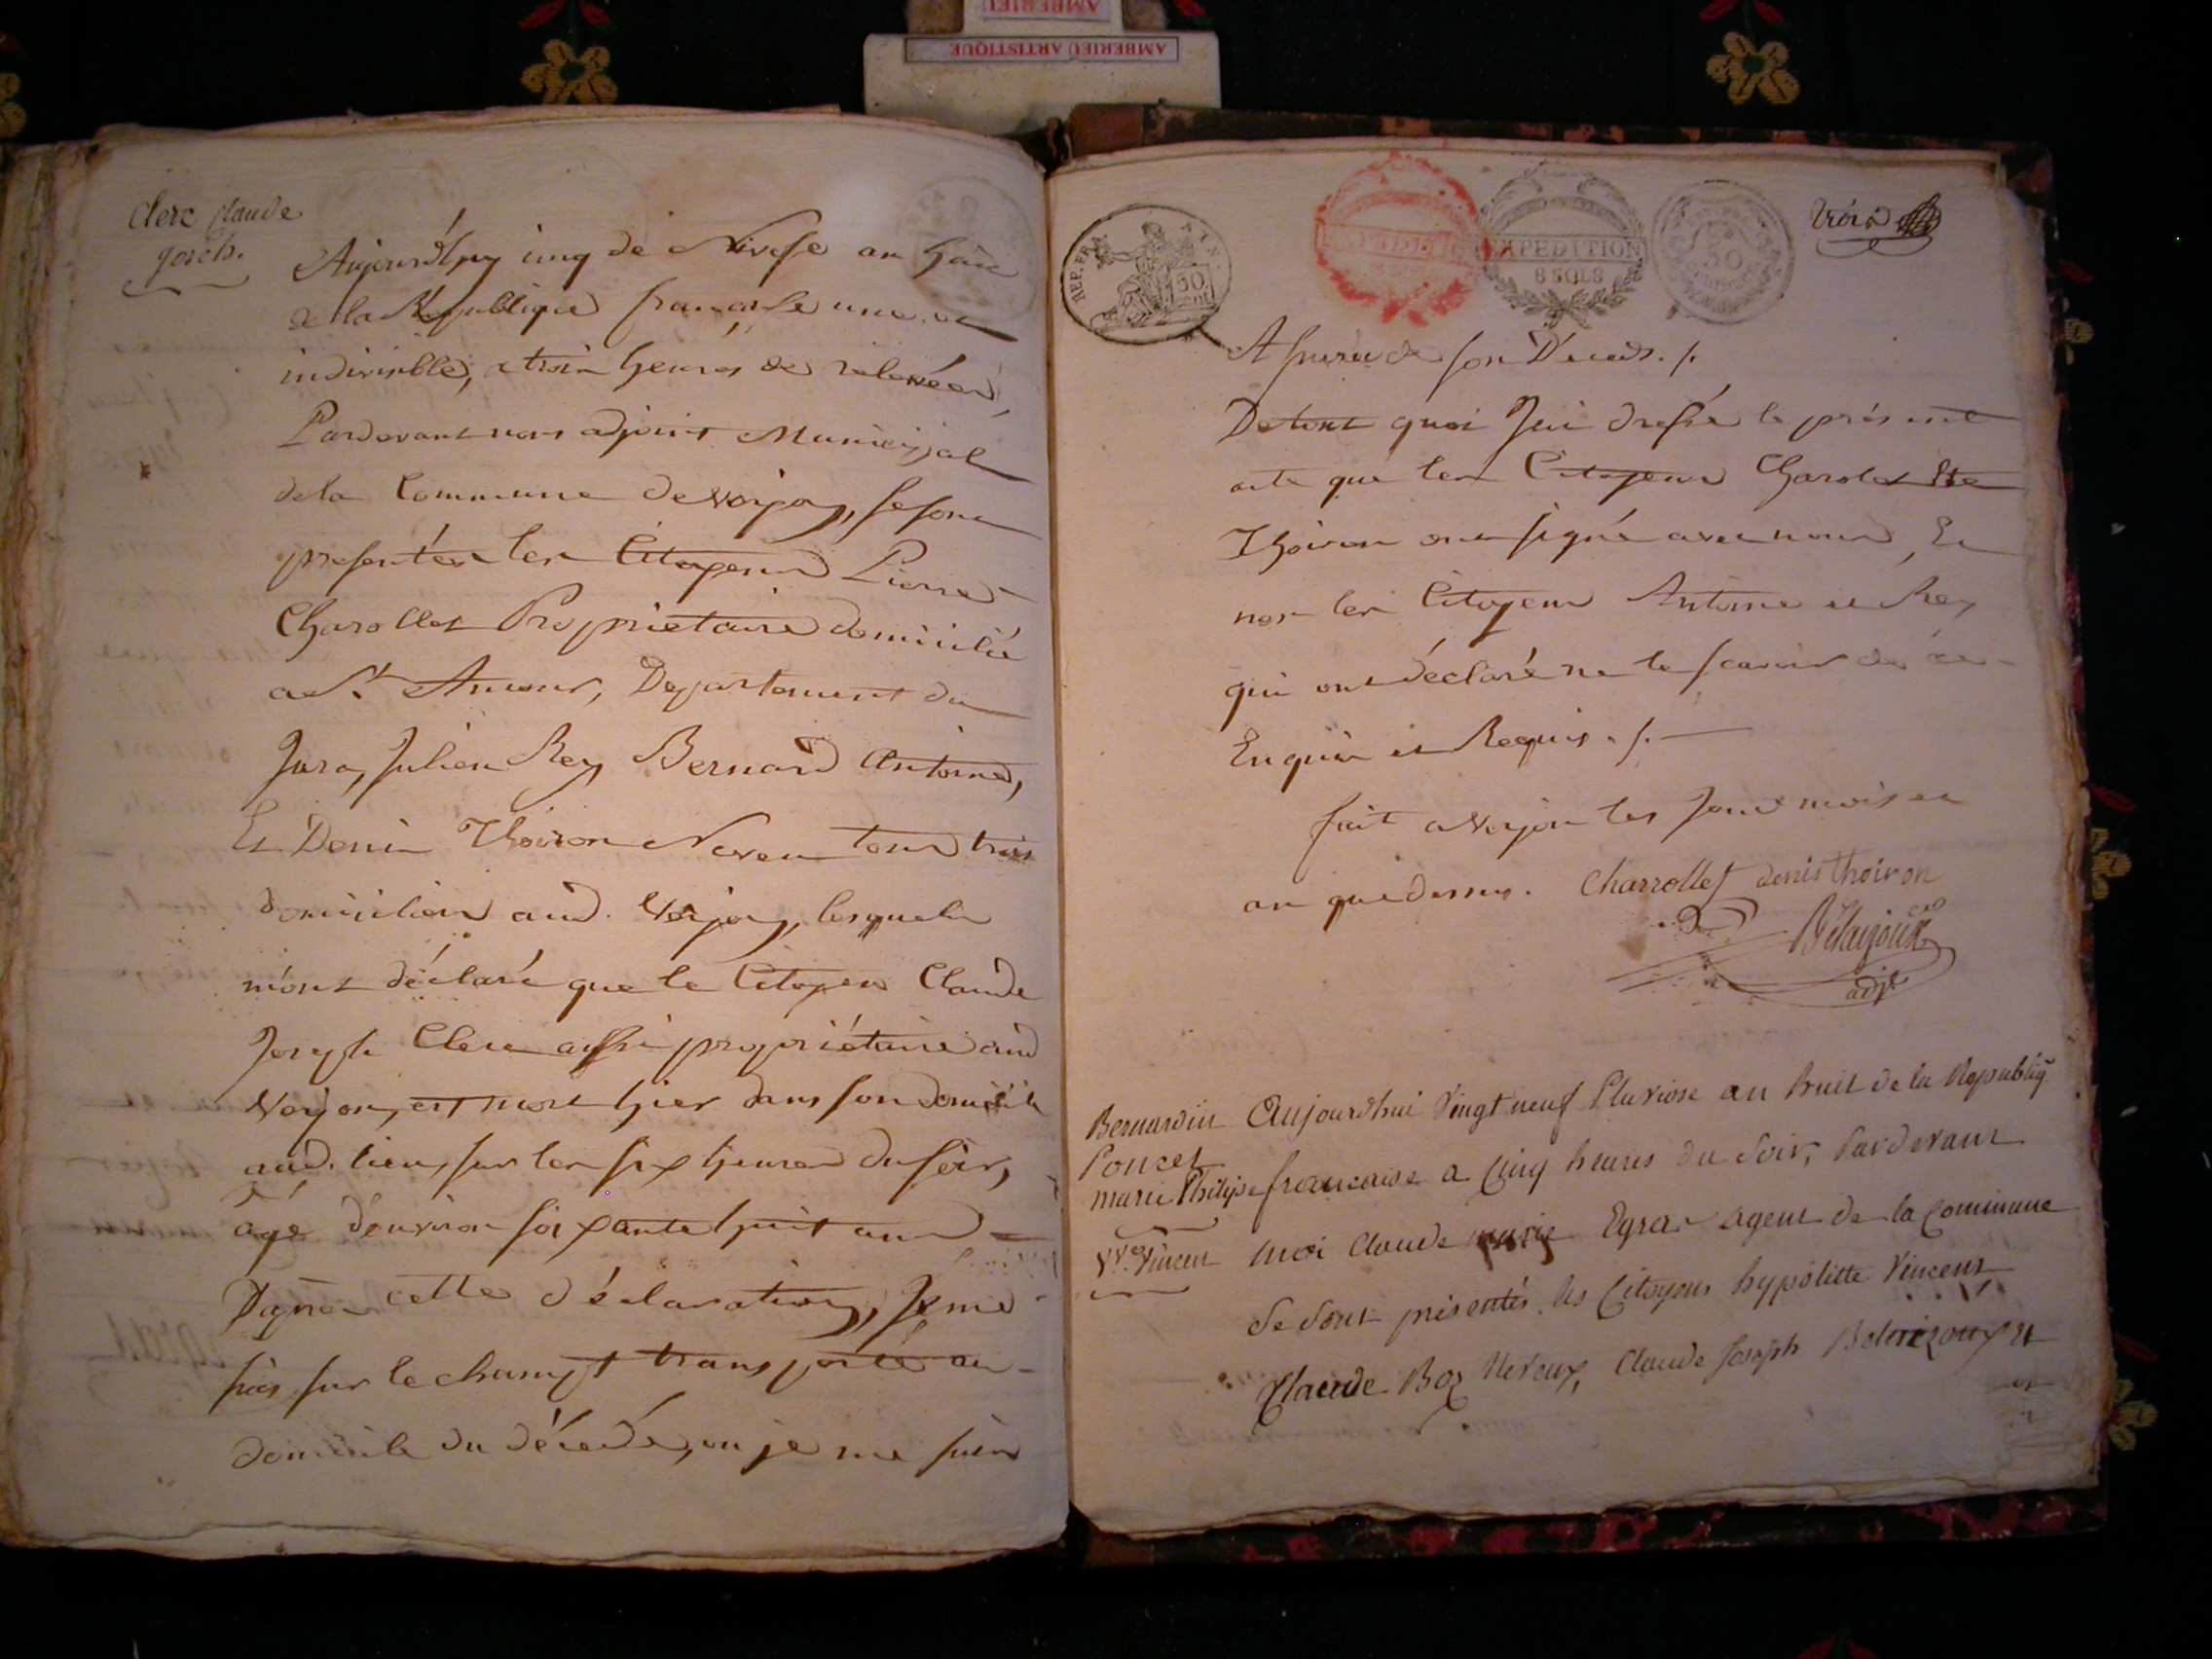 AMBERIEU
AMBERIEU ARTISTIQUE
Clerc Claude
joseh.
Aujourd'huy cinq de Nivose an huit
de la République française une et
indivisible, a trois heures de relevée,
Pardevant nous adjoint Municipal
de la Commune de Verjon, se sont
presentés les Citoyens Pierre
Charollet Propriétaire domicilié
a St Amour, Departement du
Jura, Julien Rey Bernard Antoine,
Et Denis Thoiron Neveu tous trois
domiciliés aud. Verjon, lesquels
m'ont déclaré que le Citoyen Claude
Joseph Clerc aussi propriétaire aud
Verjon, est mort hier dans son domicile
aud. lieu, sur les six heures du soir,
âgé d'environ soixante huit ans
D'après cette déclaration, Je me
suis sur le champt transporté au
domicile du décédé, ou je me suis
REP. FRA. AIN.
50
cent
EXPEDITION
6 SOLS
50
trois
Assuré de son Décéds ./.
De tout quoi J'ai dressé le présent
acte que les Citoyens Charolet Et
Thoiron ont signé avec nous, Et
non les Citoyens Antoine et Rey
qui ont déclaré ne le scavoir de ce
Enquis et Requis ./.
fait a Verjon les jour mois et
an que dessus. Charrollet denis thoiron
adjt
Bernardin
Poncet
marie Philipe
Vve Vincent
Aujourdhui Vingt neuf Pluviose an huit de la Republiq
francaise a Cinq heures du Soir, Pardevant
moi Claude marie agent de la Commune
Se Sont présentés les Citoyens hypolitte Vincent
Claude Boz Neveux, Claude Joseph Belaizoux et